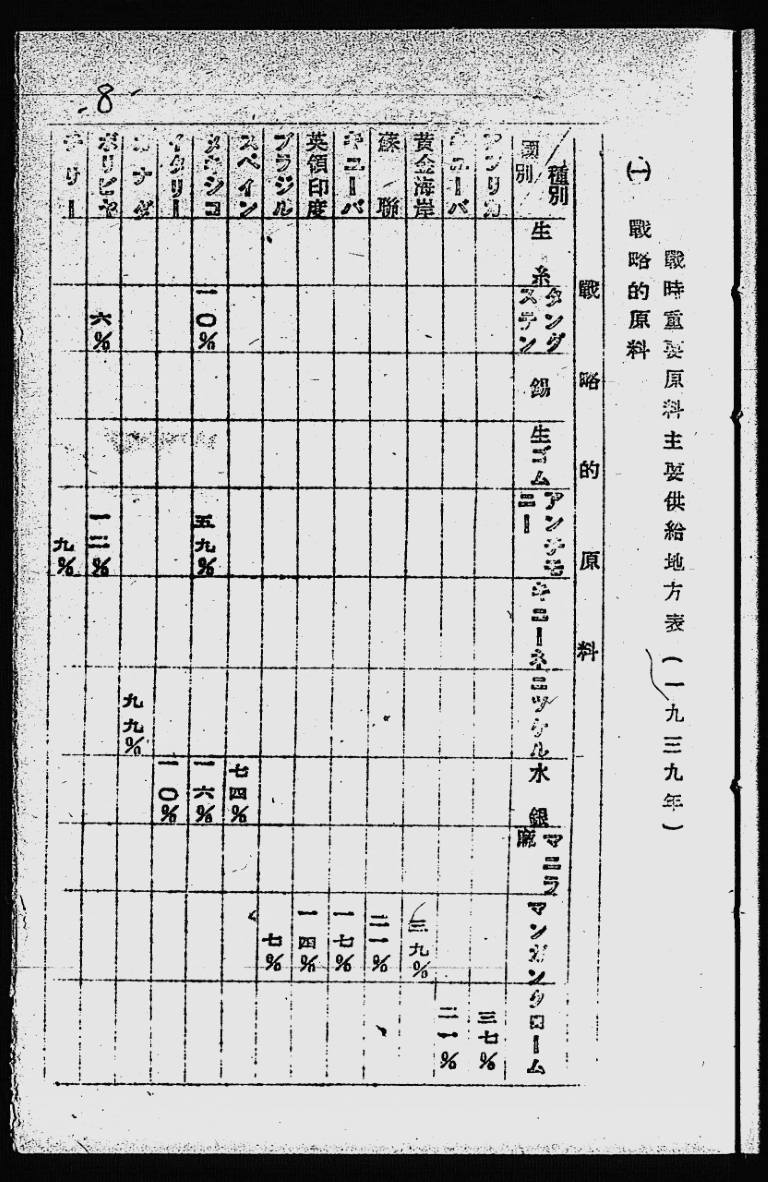 戰時重要原料主要供給地方表（一九三九年）
㈠ 戰略的原料
戰略的原料
種別
國別
生糸
タングステン
錫
生ゴム
アンチモニー
キニーネ
ニツケル
水銀
マニラ麻
マンガン
クローム
アフリカ
三七%
キユーバ
二一%
黄金海岸
三九%
蘇聯
二一%
キユーバ
一七%
英領印度
一四%
ブラジル
七%
スペイン
七四%
メキシコ
一〇%
五九%
一六%
イタリー
一〇%
カナダ
九九%
ボリビヤ
六%
一二%
チリー
九%
8